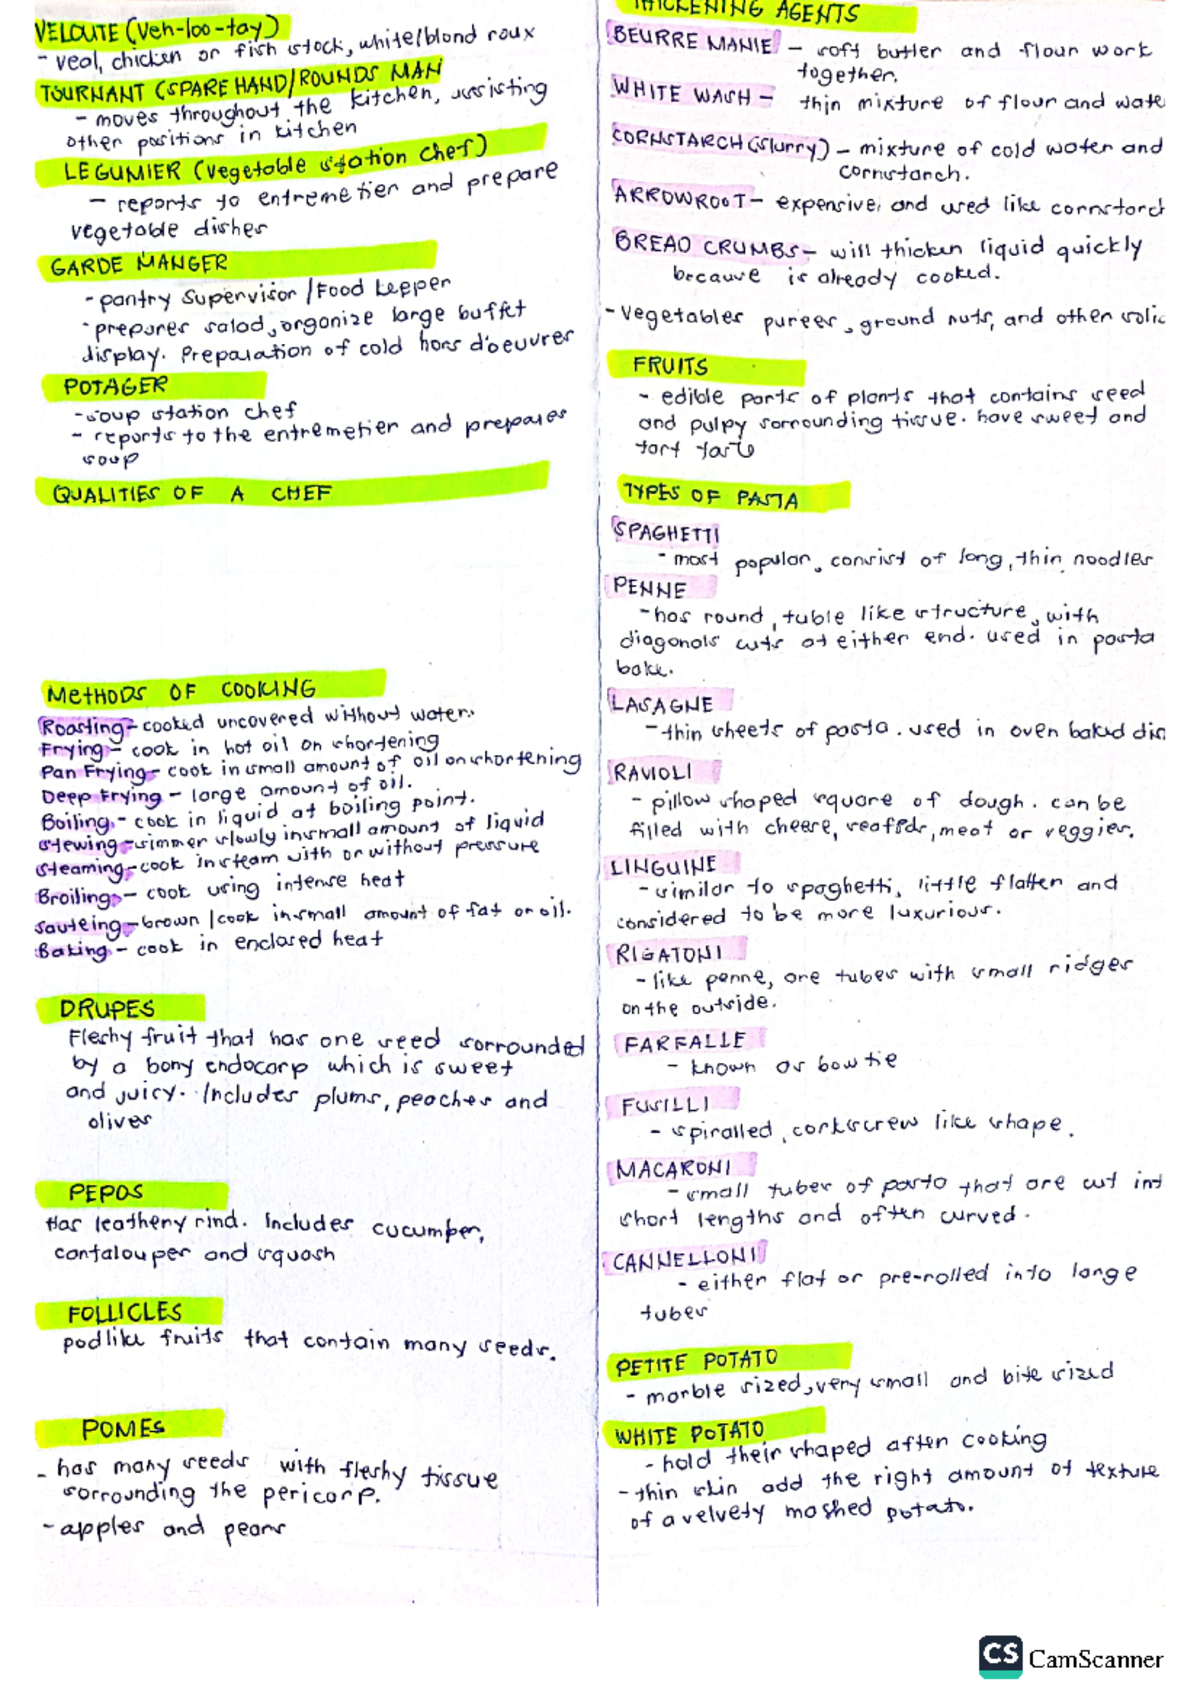 VELOUTE (Veh-loo-tay)
- veal, chicken or fish stock, white/blond roux
TOURNANT (SPARE HAND/ROUNDS MAN
- moves throughout the kitchen, assisting
other positions in kitchen
LEGUMIER (vegetable station chef)
- reports to entremetier and prepare
vegetable dishes
GARDE MANGER
- pantry supervisor / Food kepper
- prepares salad, organize large buffet
display. Preparation of cold hors d'oeuvres
POTAGER
- soup station chef
- reports to the entremetier and prepares
soup
QUALITIES OF A CHEF
METHODS OF COOKING
Roasting - cooked uncovered without water.
Frying - cook in hot oil on shortening
Pan Frying - cook in small amount of oil on shortening
Deep Frying - large amount of oil.
Boiling - cook in liquid at boiling point.
stewing - simmer slowly in small amount of liquid
steaming - cook in steam with or without pressure
Broiling - cook using intense heat
sauteing - brown / cook in small amount of fat or oil.
Baking - cook in enclosed heat
DRUPES
Fleshy fruit that has one seed sorrounded
by a bony endocarp which is sweet
and juicy. Includes plums, peaches and
olives
PEPOS
Has leathery rind. Includes cucumber,
cantaloupes and squash
FOLLICLES
podlike fruits that contain many seeds.
POMES
- has many seeds with fleshy tissue
sorrounding the pericarp.
- apples and pears
THICKENING AGENTS
BEURRE MANIE - soft butter and flour work
together.
WHITE WASH - thin mixture of flour and wate
CORNSTARCH (slurry) - mixture of cold water and
cornstarch.
ARROWROOT - expensive, and used like cornstarch
BREAD CRUMBS - will thicken liquid quickly
because is already cooked.
- vegetables purees, ground nuts, and other solic
FRUITS
- edible parts of plants that contains seed
and pulpy sorrounding tissue. have sweet and
tart taste
TYPES OF PASTA
SPAGHETTI
- most popular, consist of long, thin noodles
PENNE
- has round, tuble like structure, with
diagonals cuts at either end. used in pasta
bake.
LASAGNE
- thin sheets of pasta. used in oven baked dis
RAVIOLI
- pillow shaped square of dough. can be
filled with cheese, seaffds, meat or veggies.
LINGUINE
- similar to spaghetti, little flatten and
considered to be more luxurious.
RIGATONI
- like penne, are tubes with small ridges
on the outside.
FARFALLE
- known as bow tie
FUSILLI
- spiralled, corkscrew like shape.
MACARONI
- small tubes of pasta that are cut int
short lengths and often curved.
CANNELLONI
- either flat or pre-rolled into large
tubes
PETITE POTATO
- marble sized, very small and bite sized
WHITE POTATO
- hold their shaped after cooking
- thin skin add the right amount of texture
of a velvety mashed potato.
CS CamScanner